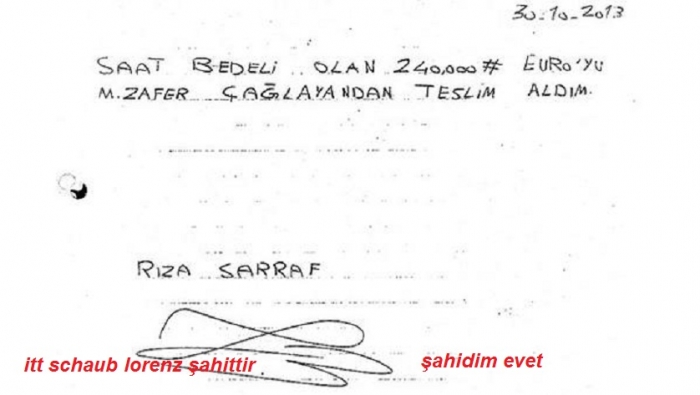 30-10-2013
SAAT BEDELİ OLAN 240,000# EURO'YU
M.ZAFER ÇAĞLAYANDAN TESLİM ALDIM.
RIZA SARRAF
itt schaub lorenz şahittir
şahidim evet